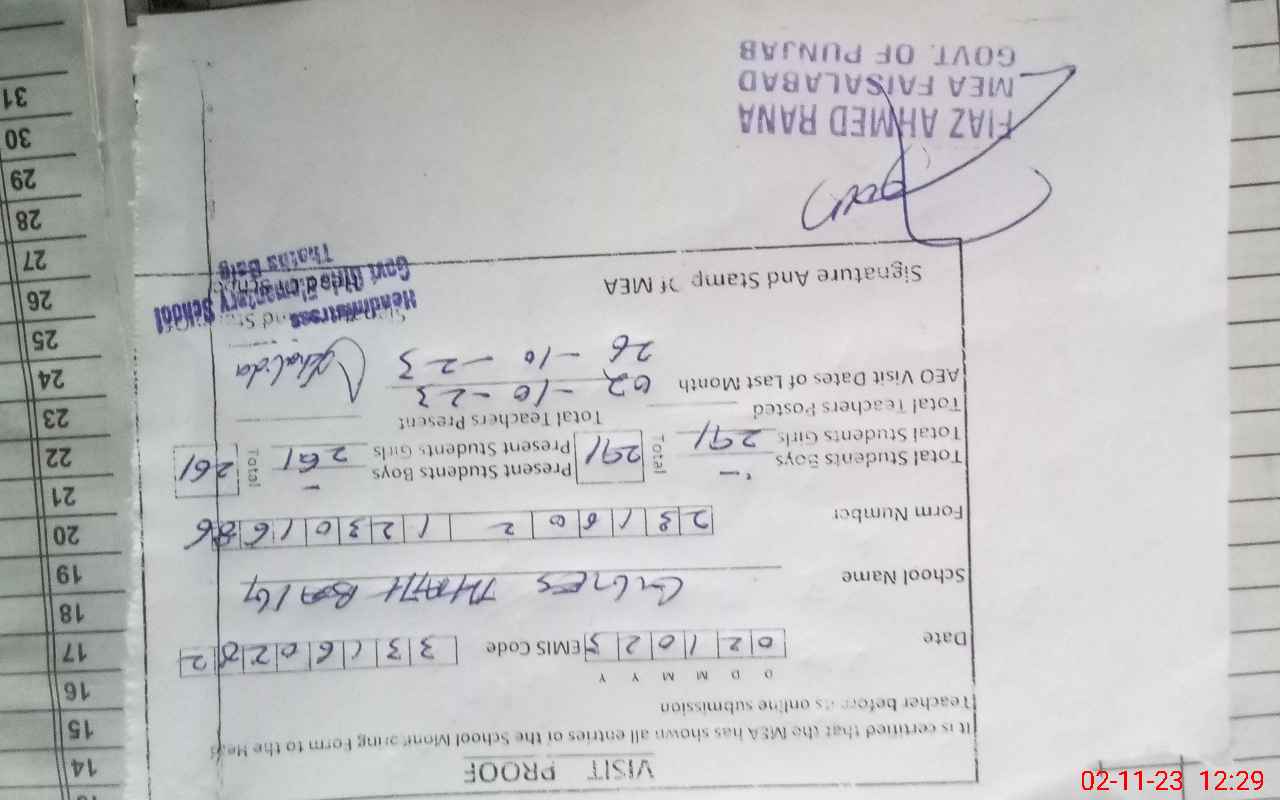 VISIT PROOF
It is certified that the MEA has shown all entries of the School Monitoring Form to the Head
Teacher before its online submission
D D M M Y Y
Date 0 2 1 0 2 3 EMIS Code 3 3 1 6 0 2 8 2
School Name GGES THATH BAIG
Form Number
Total Students Boys - Total 291 Present Students Boys - Total 261
Total Students Girls 291 Present Students Girls 261
Total Teachers Posted Total Teachers Present
AEO Visit Dates of Last Month 02-10-23
26-10-23 Khalida
Signature And Stamp Of MEA
Headmistress
Govt Girls Elementary School
Thatha Baig
FIAZ AHMED RANA
MEA FAISALABAD
GOVT. OF PUNJAB
14
15
16
17
18
19
20
21
22
23
24
25
26
27
28
29
30
31
02-11-23 12:29